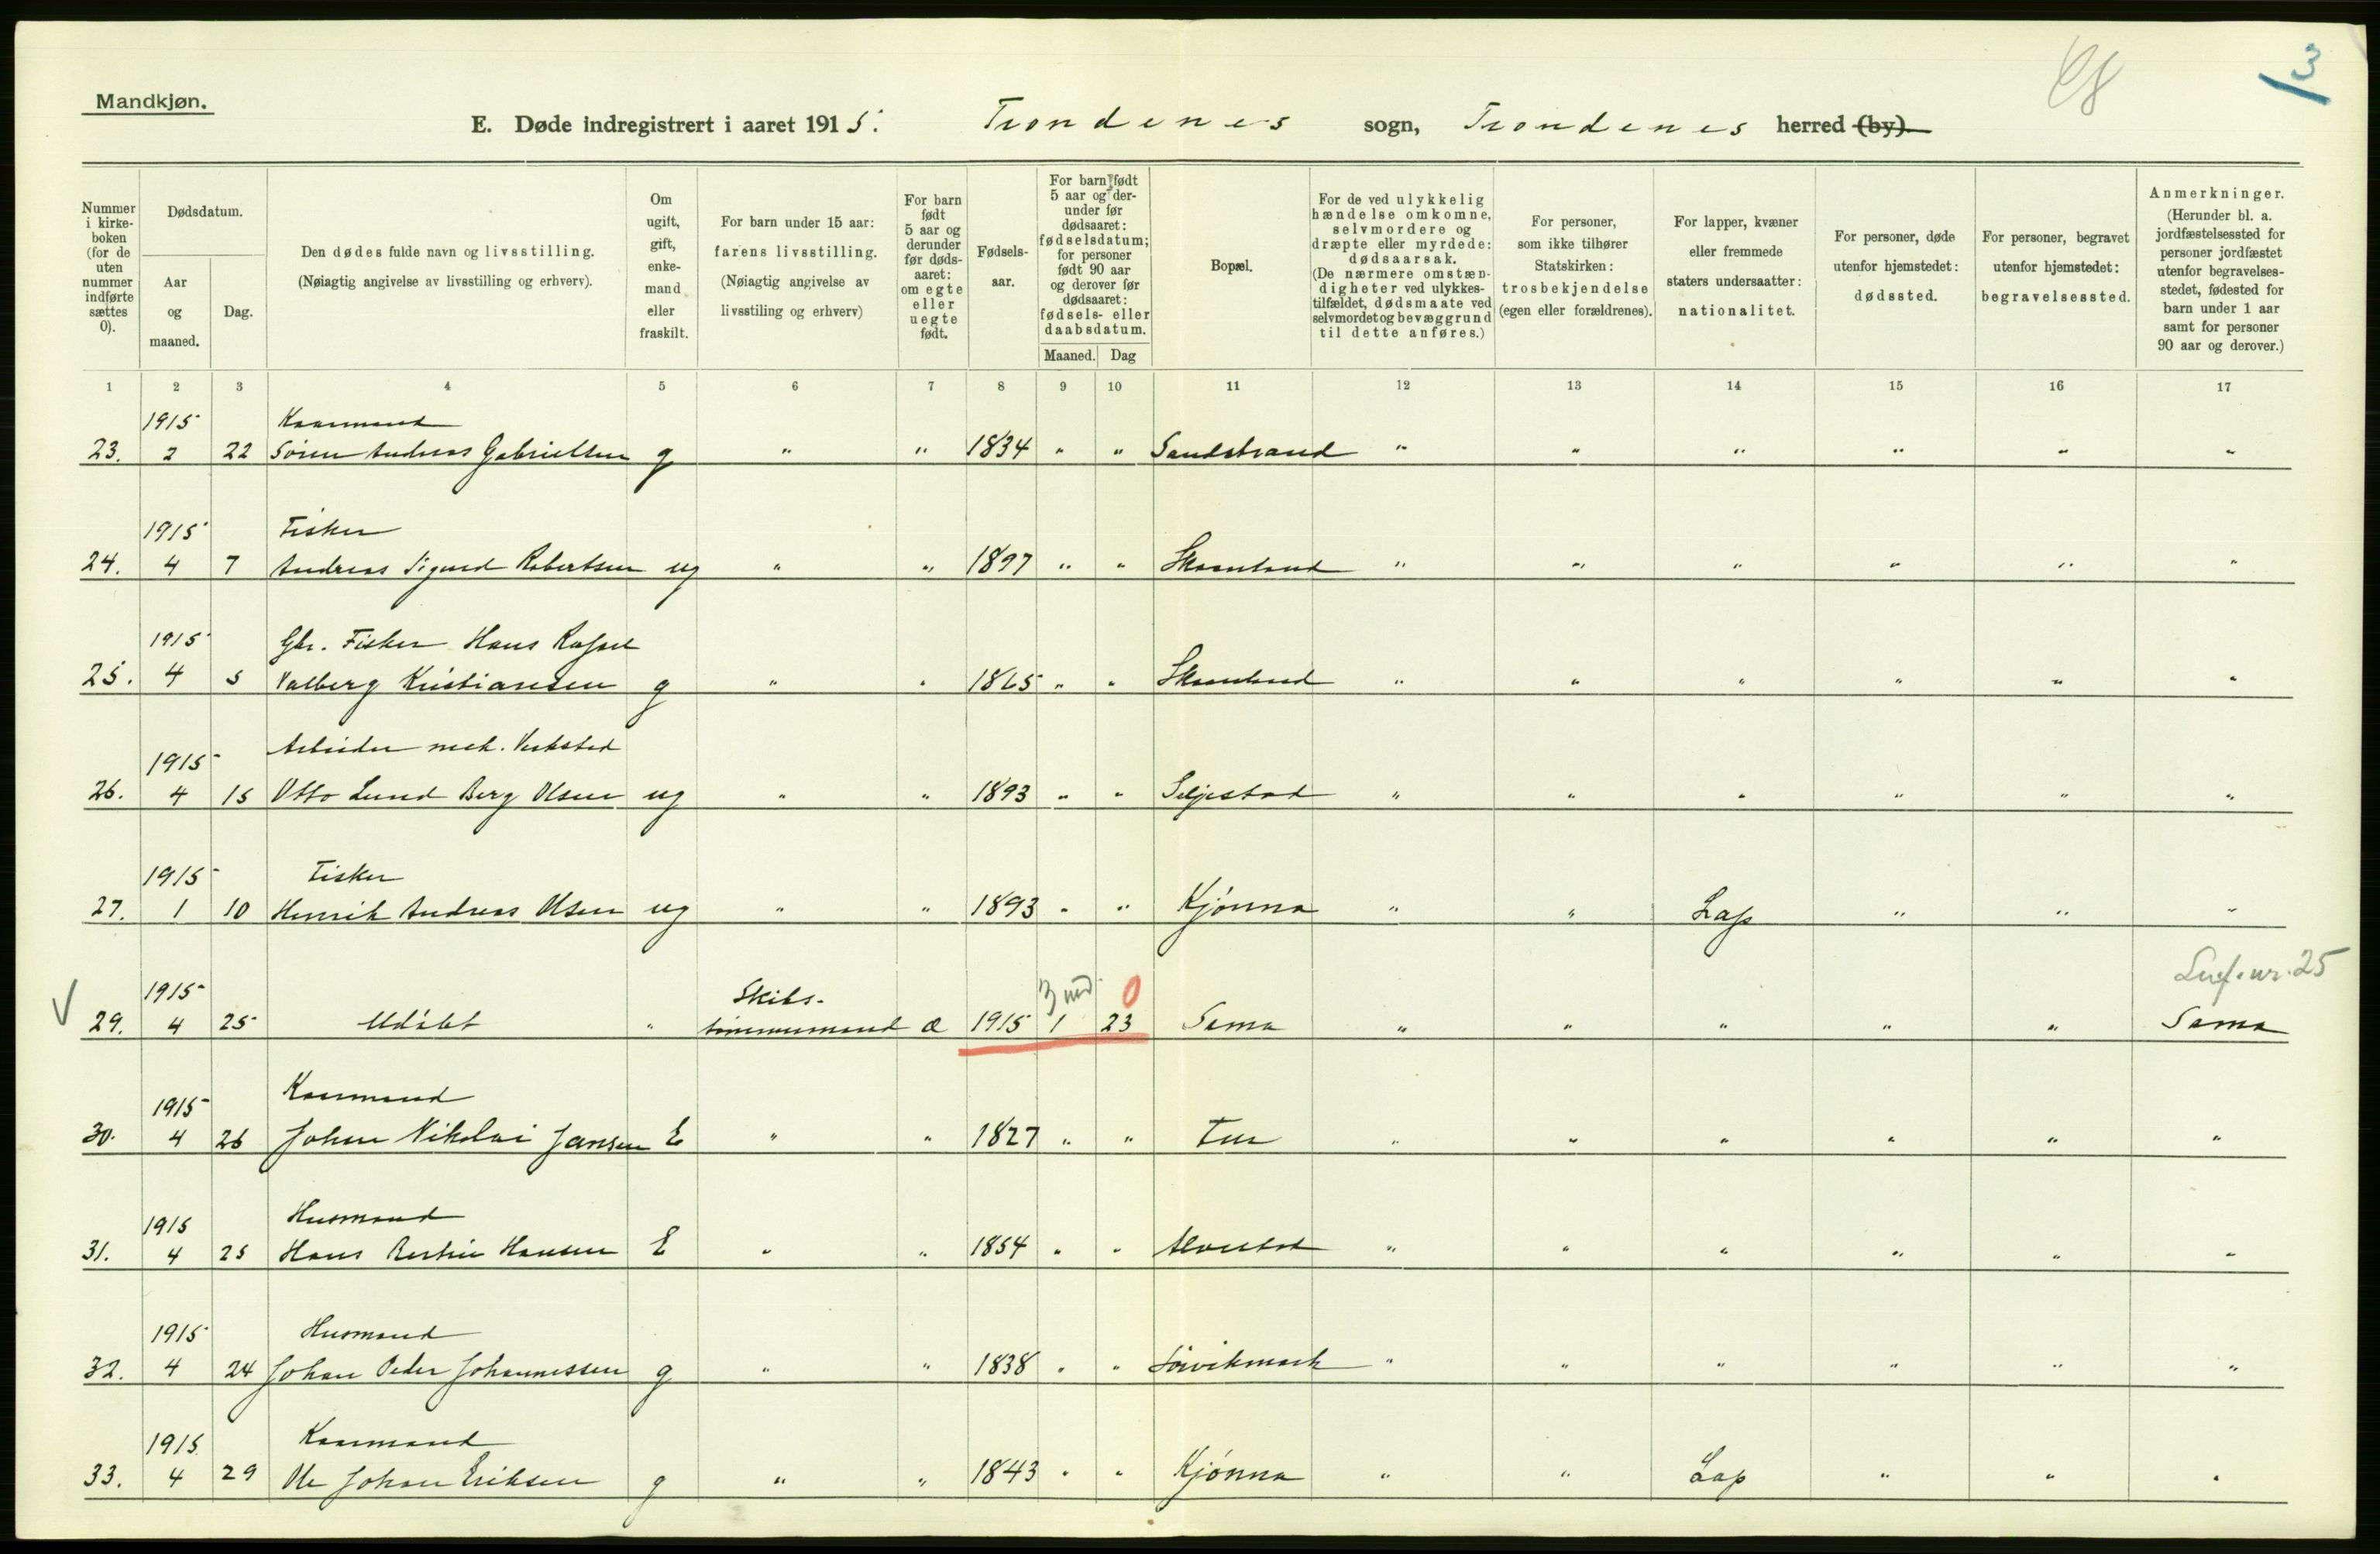 68
3
Mandkjøn.
E. Døde indregistrert i aaret 1915. Trondenes sogn, Trondenes herred (by)
Nummer i kirke- boken (for de uten nummer indførte sættes 0).
Dødsdatum.
Aar og maaned.
Dag.
Den dødes fulde navn og livsstilling.
(Nøiagtig angivelse av livsstilling og erhverv).
Om ugift, gift, enke- mand eller fraskilt.
For barn under 15 aar:
farens livsstilling.
(Nøiagtig angivelse av
livsstiling og erhverv)
For barn født 5 aar og derunder før døds- aaret: om egte eller uegte født.
Fødsels- aar.
For barn født 5 aar og der- under før dødsaaret: fødselsdatum; for personer født 90 aar og derover før dødsaaret: fødsels- eller daabsdatum.
Maaned. Dag
Bopæl.
For de ved ulykkelig hændelse omkomne, selvmordere og dræpte eller myrdede: dødsaarsak. (De nærmere omstæn- digheter ved ulykkes- tilfældet, dødsmaate ved selvmordet og bevæggrund til dette anføres.)
For personer, som ikke tilhører Statskirken: trosbekjendelse (egen eller forældrenes).
For lapper, kvæner eller fremmede staters undersaatter: nationalitet.
For personer, døde utenfor hjemstedet: dødssted.
For personer, begravet utenfor hjemstedet: begravelsessted.
Anmerkninger. (Herunder bl. a. jordfæstelsessted for personer jordfæstet utenfor begravelses- stedet, fødested for barn under 1 aar samt for personer 90 aar og derover.)
1 2 3 4 5 6 7 8 9 10 11 12 13 14 15 16 17
1915 Kaarmand
23. 2 22 Søren Andreas Gabrielsen g " " 1834 " " Sandstrand " " " " " "
1915 Fisker
24. 4 7 Andreas Sigurd Robertsen ug " " 1897 " " Skaanland " " " " " "
1915 Gbr. Fisker Hans Rafael
25. 4 5 Valberg Kristiansen g " " 1865 " " Skaanland " " " " " "
1915 Arbeider mek. Verksted
26. 4 15 Otto Lund Berg Olsen ug " " 1893 " " Seljestad " " " " " "
1915 Fisker
27. 1 10 Henrik Andreas Olsen ug " " 1893 " " Kjønna " " Lap " " "
1915 Skibs- 3 md. 0 nr. 25
V 29. 4 25 Udøbt " tømmermand æ 1915 1 23 Sama " " " " " Sama
1915 Kaarmand
30. 4 26 Johan Nikolai Jansen E " " 1827 " " " " " " " "
1915 Husmand
31. 4 25 Hans Hansen E " " 1854 " " " " " " " "
1915 Husmand
32. 4 24 Johan Peder Johannessen g " " 1838 " " Sørvikmark " " " " " "
1915 Kaarmand
33. 4 29 Ole Johan Eriksen g " " 1843 " " Kjønna " " Lap " " "